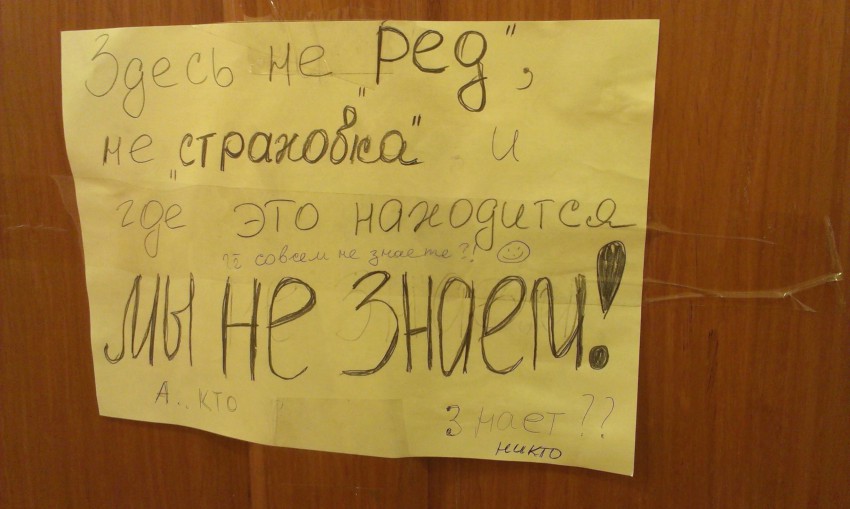 Здесь не "Ред",
не "страховка" и
где это находится
совсем не знаете?!
мы не знаем!
А.. кто знает??
никто